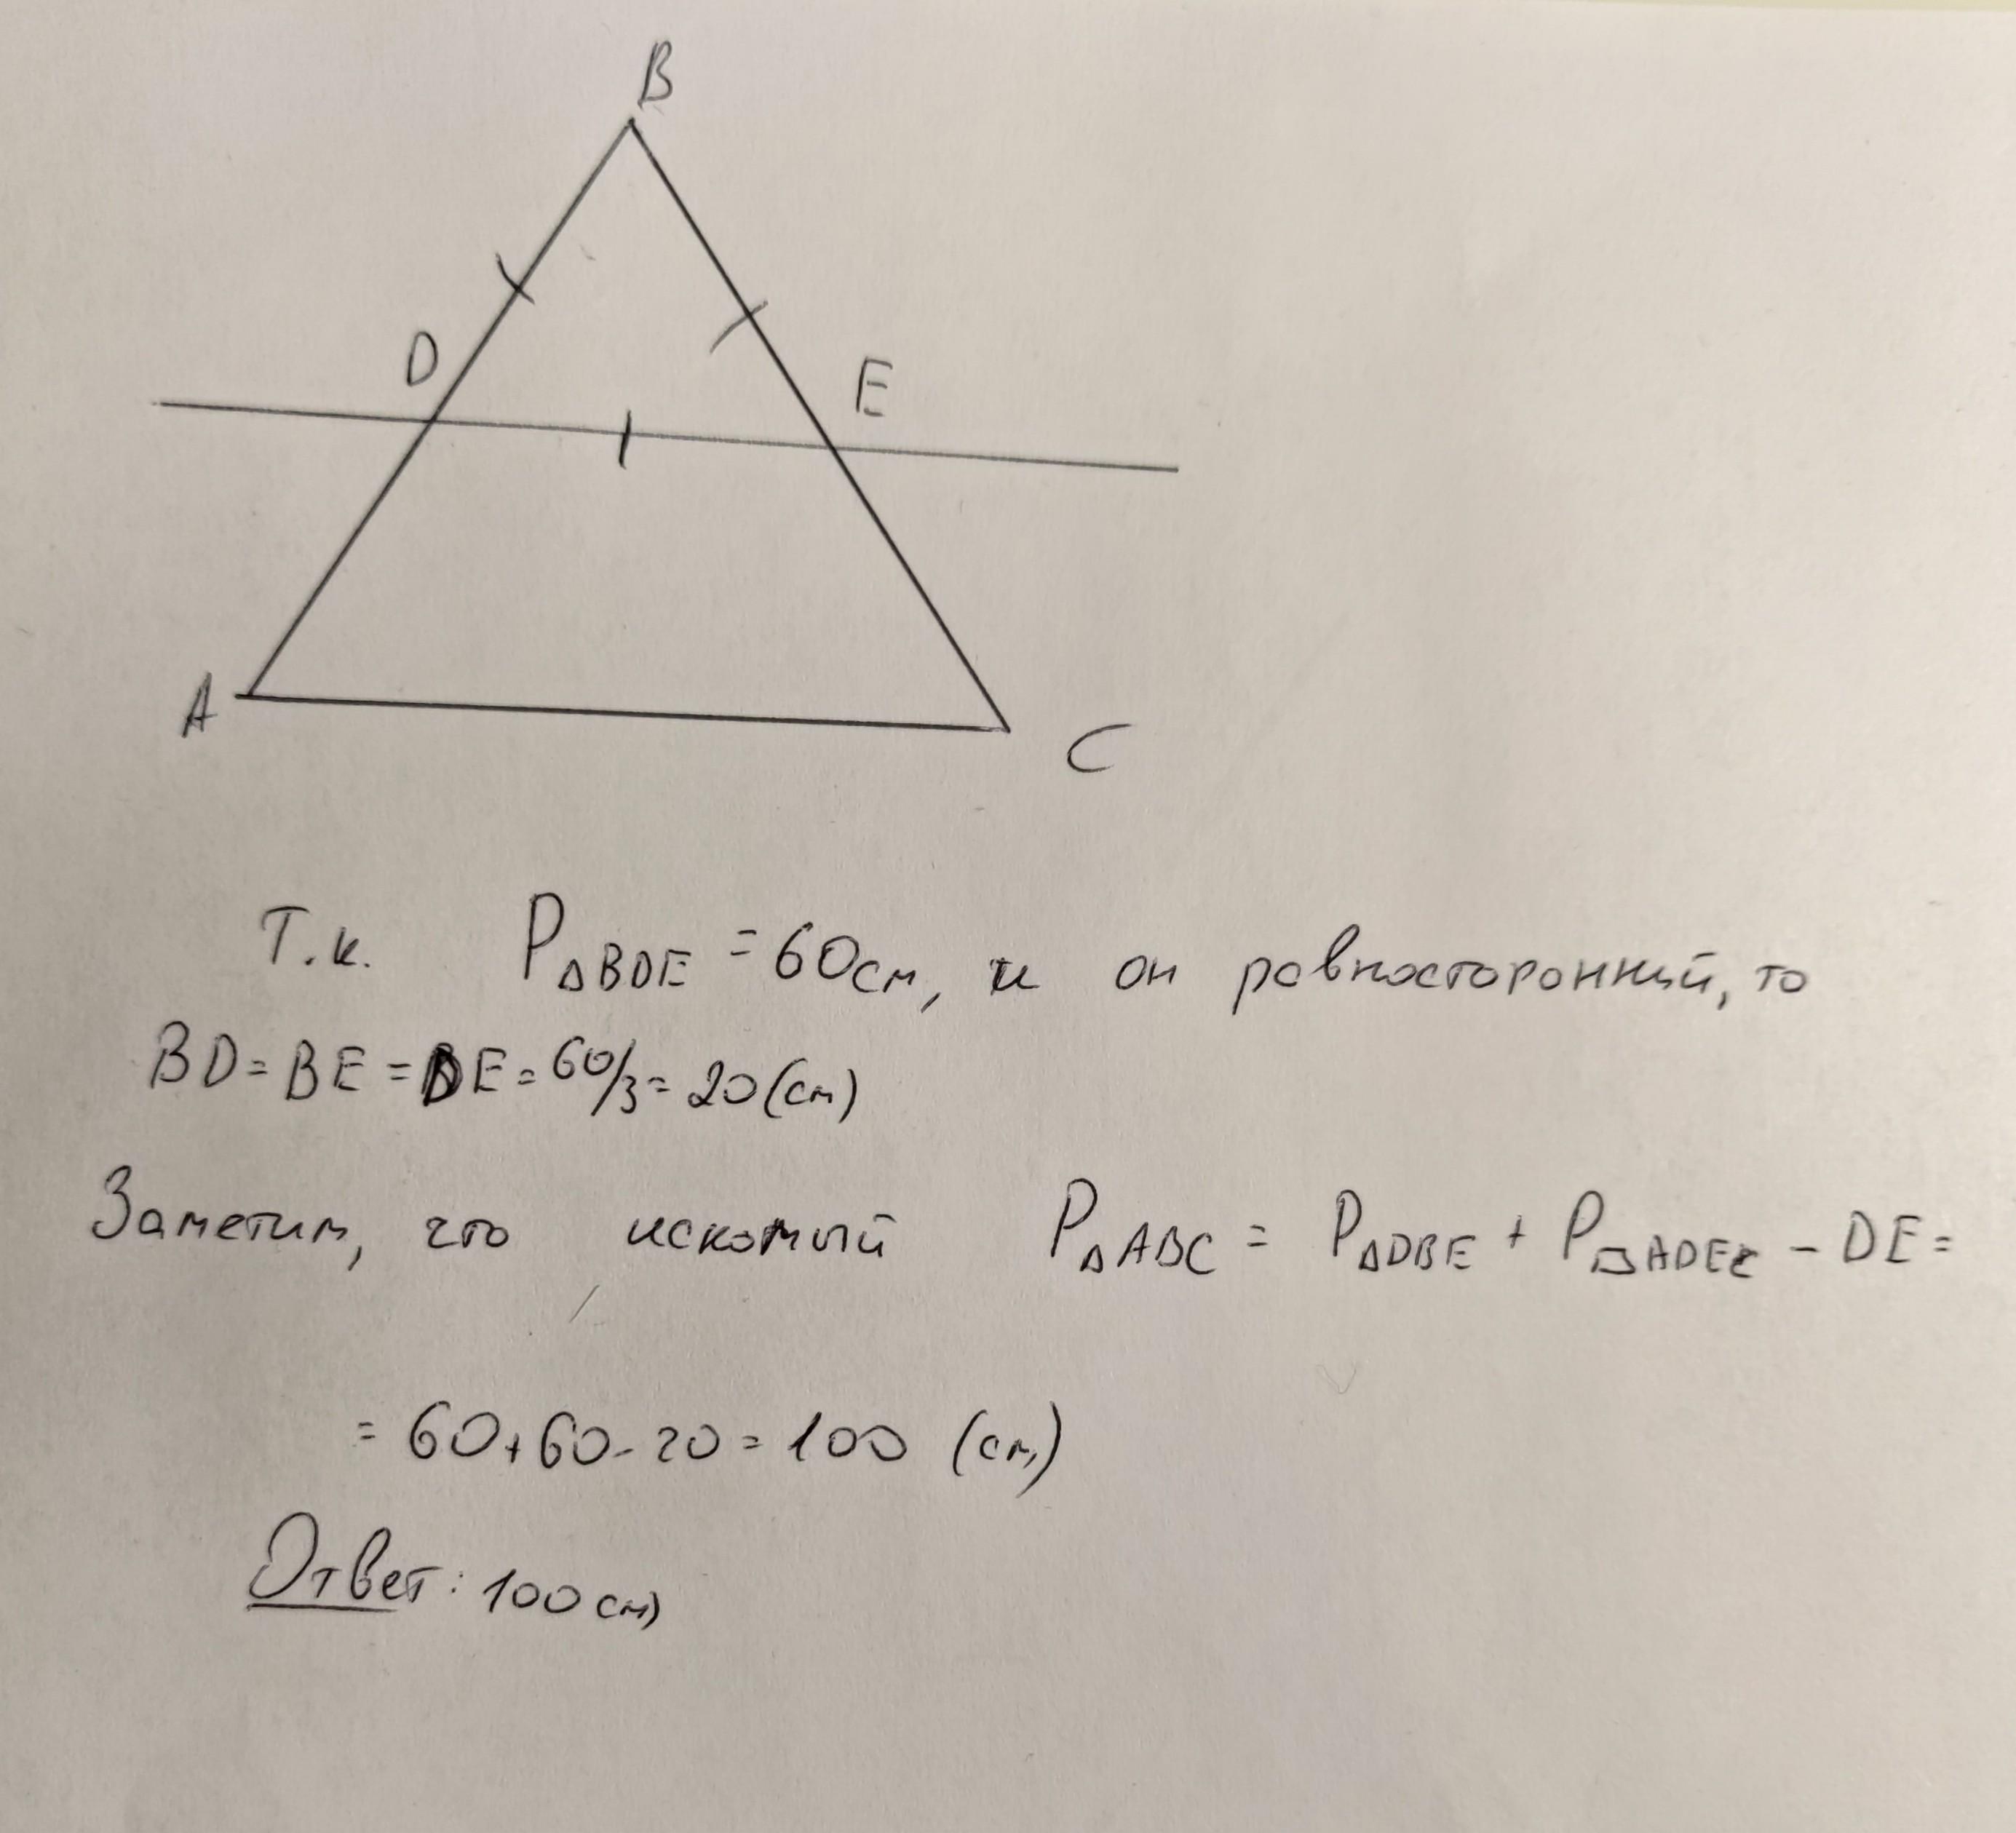 B
D
E
A
C
Т.к. P△BDE = 60см, и он равносторонний, то
BD = BE = DE = 60/3 = 20 (см)
Заметим, что искомый P△ABC = P△DBE + P▱ADEC - DE =
= 60 + 60 - 20 = 100 (см)
Ответ: 100 см